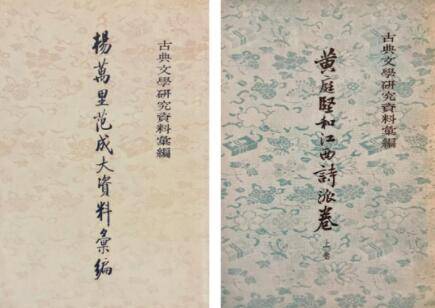 古典文學研究資料彙編
楊萬里范成大資料彙編
古典文學研究資料彙編
黃庭堅和江西詩派卷
上卷